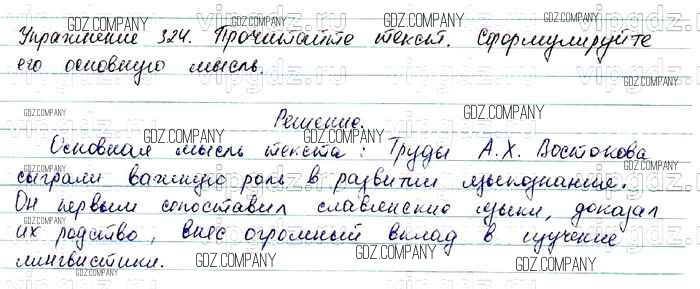 Упражнение 324. Прочитайте текст. Сформулируйте
его основную мысль.
Решение.
Основная мысль текста: Труды А.Х. Востокова
сыграли важную роль в развитии языкознание.
Он первым сопоставил славянские языки, доказал
их родство, внес огромный вклад в изучение
лингвистики.
GDZ.COMPANY
GDZ.COMPANY
GDZ.COMPANY
GDZ.COMPANY
GDZ.COMPANY
GDZ.COMPANY
GDZ.COMPANY
GDZ.COMPANY
GDZ.COMPANY
GDZ.COMPANY
GDZ.COMPANY
GDZ.COMPANY
GDZ.COMPANY
GDZ.COMPANY